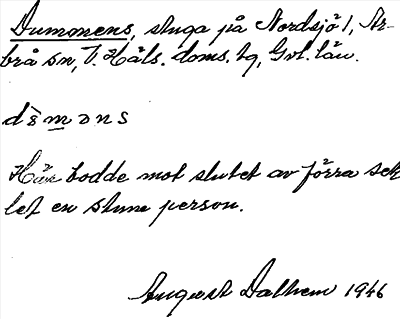 Dummens, stuga på Nordsjö 1, Ar-
brå sn, V. Häls. doms. tg, Gvl. län.
Här bodde mot slutet av förra sek
let en stum person.
August Dalhem 1946